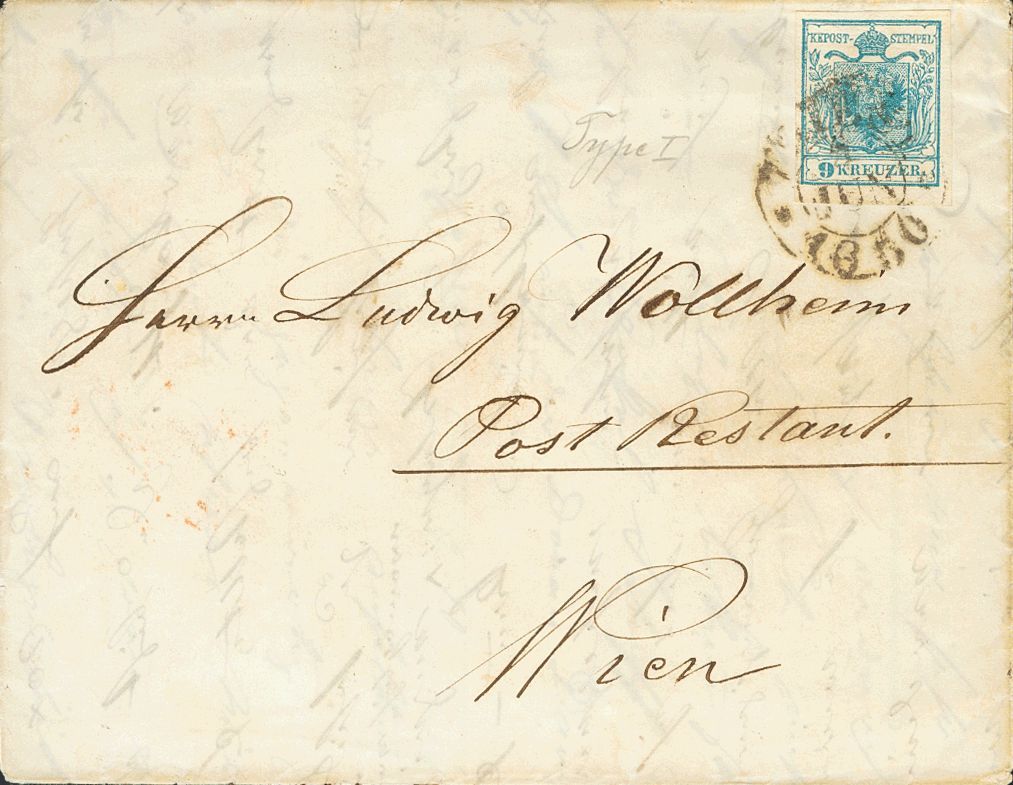 KKPOST-STEMPEL
9 KREUZER.
JUN
1850
Type I
Herrn Ludwig Wollheim
Post Restant.
Wien